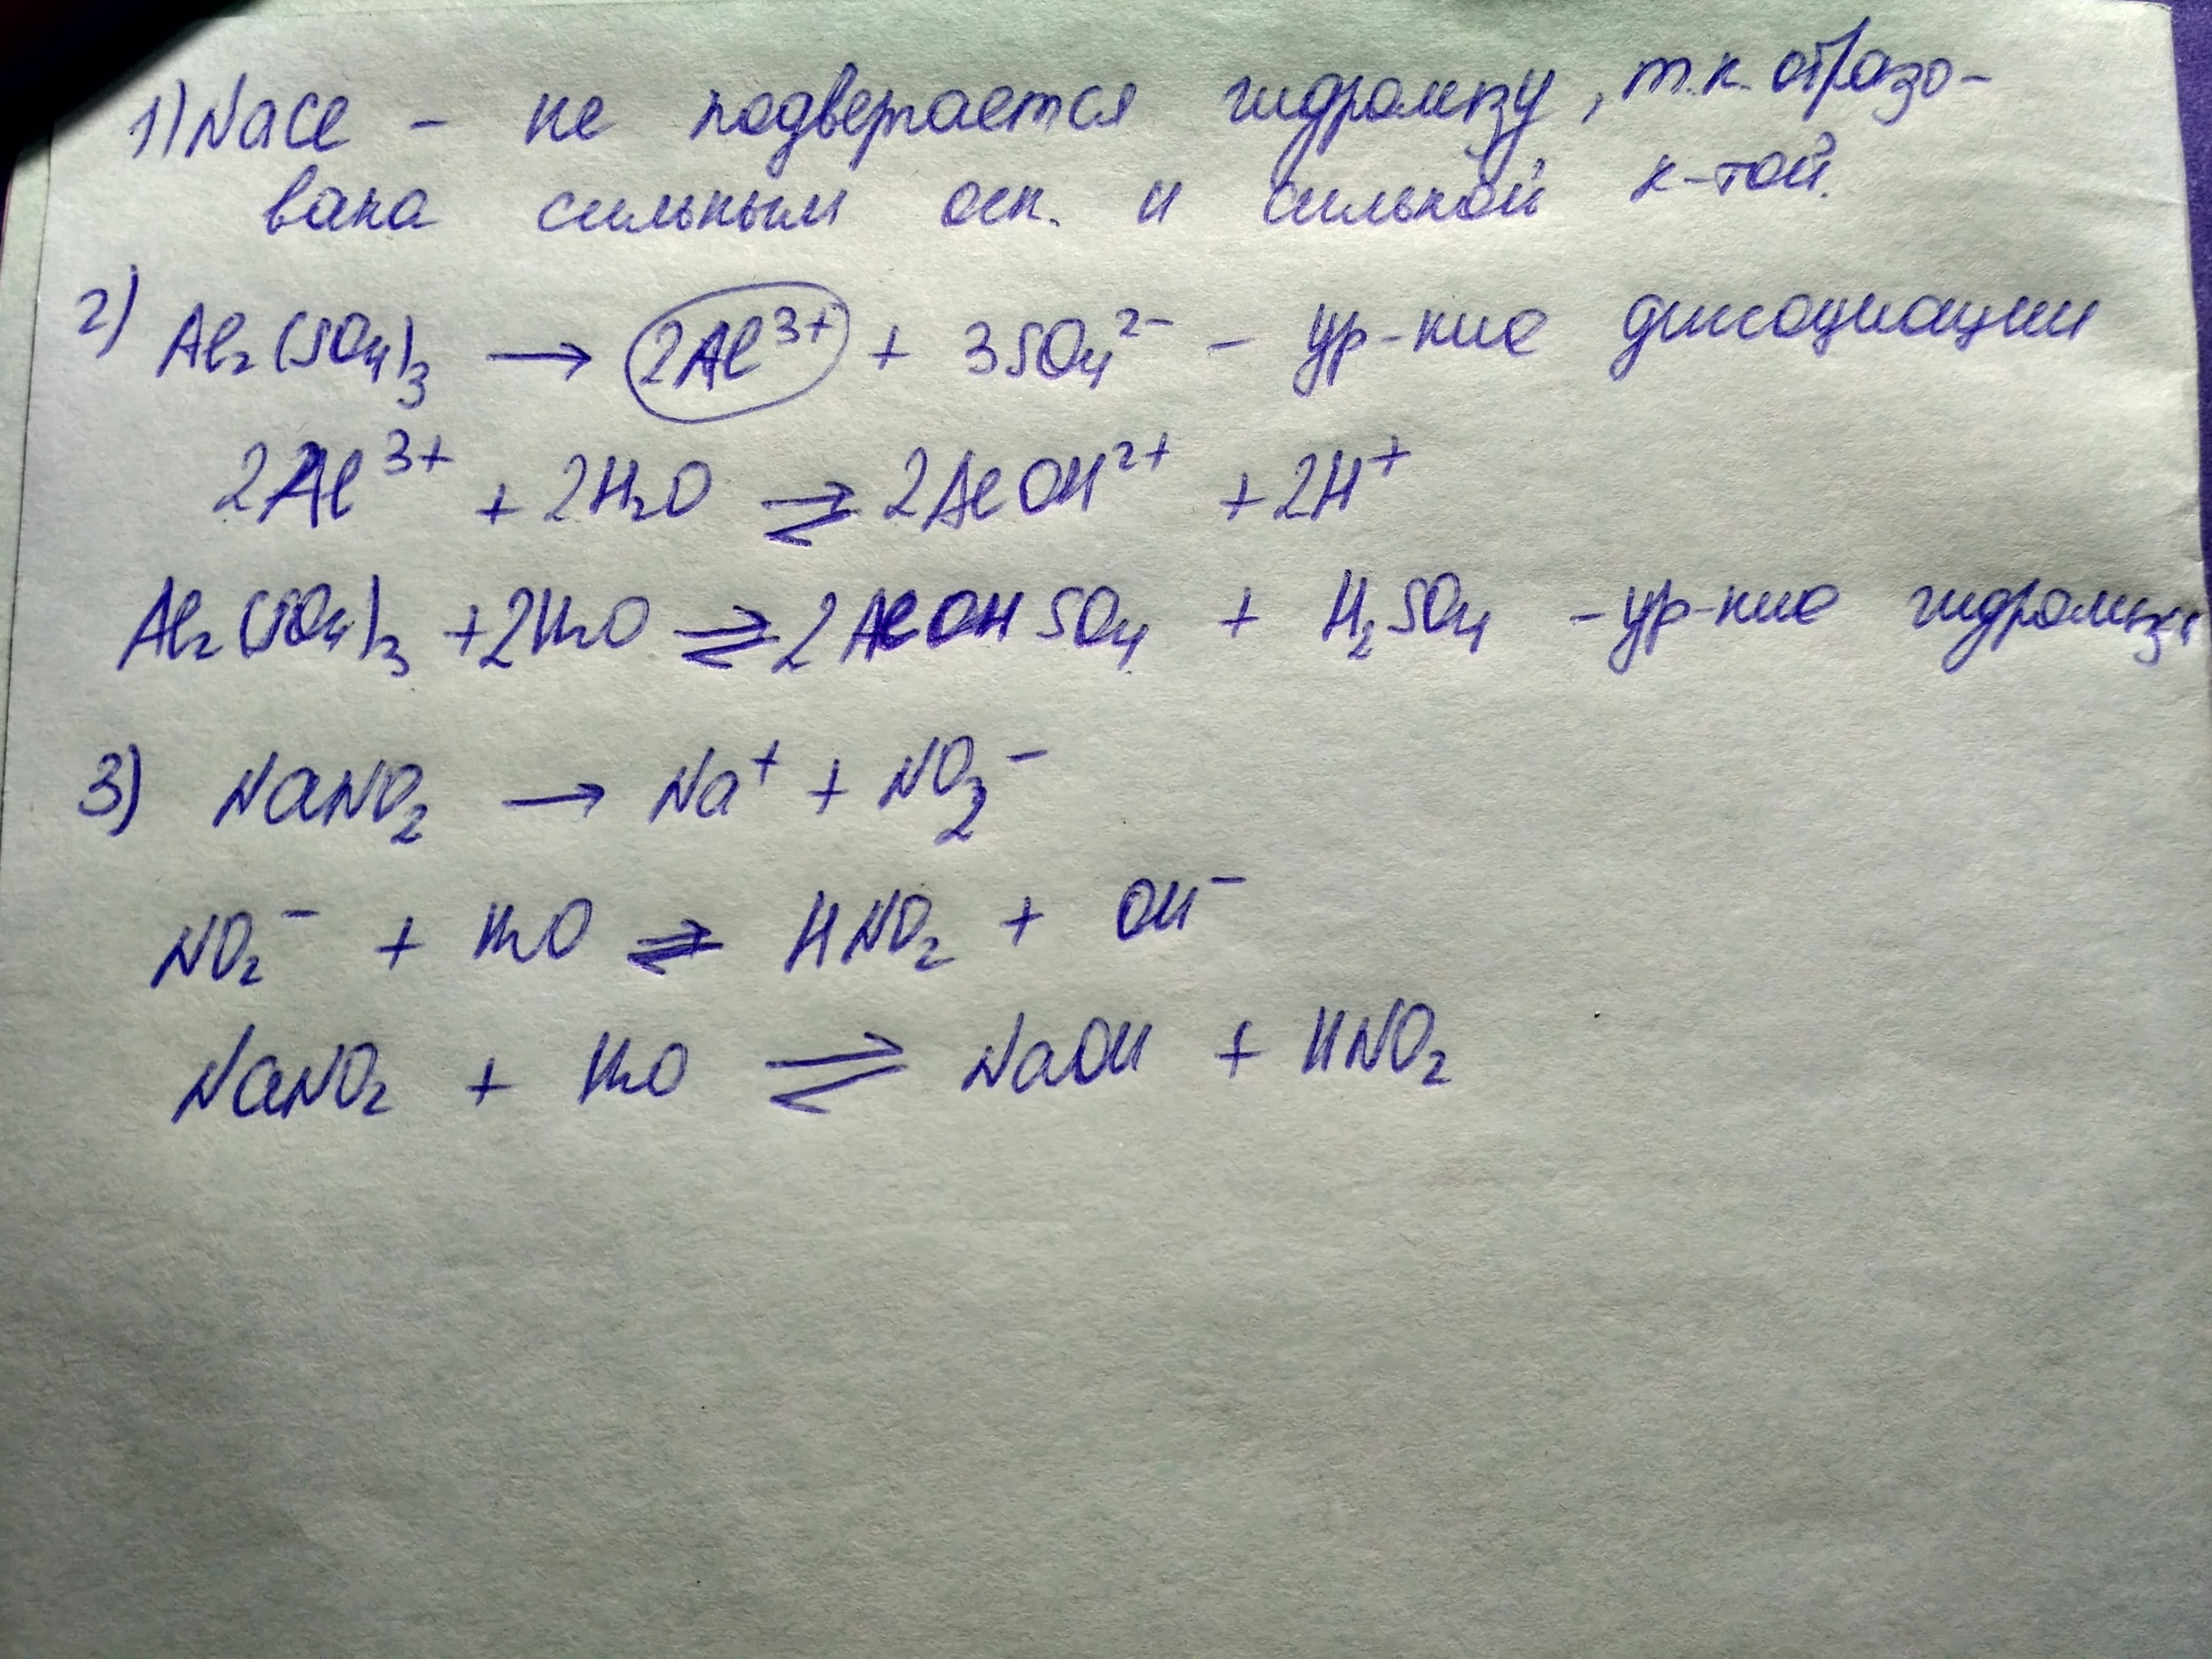 1) NaCl - не подвергается гидролизу, т.к. образо-
вана сильным осн. и сильной к-той.
2) Al₂(SO₄)₃ → 2Al³⁺ + 3SO₄²⁻ - ур-ние диссоциации
2Al³⁺ + 2H₂O ⇌ 2AlOH²⁺ + 2H⁺
Al₂(SO₄)₃ + 2H₂O ⇌ 2AlOHSO₄ + H₂SO₄ - ур-ние гидролиза
3) NaNO₂ → Na⁺ + NO₂⁻
NO₂⁻ + H₂O ⇌ HNO₂ + OH⁻
NaNO₂ + H₂O ⇌ NaOH + HNO₂